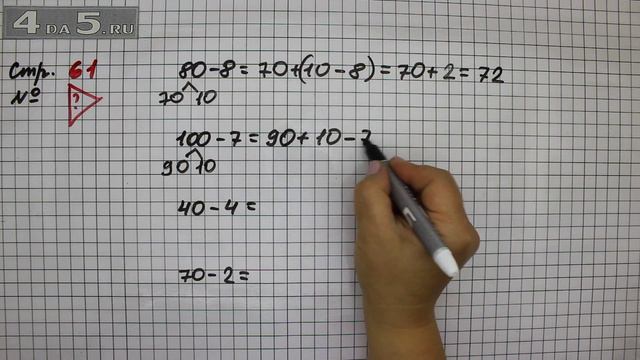 4DA5.RU
Стр. 61
№ ?
80-8=70+(10-8)=70+2=72
70 10
100-7=90+10-7
90 10
40-4=
70-2=